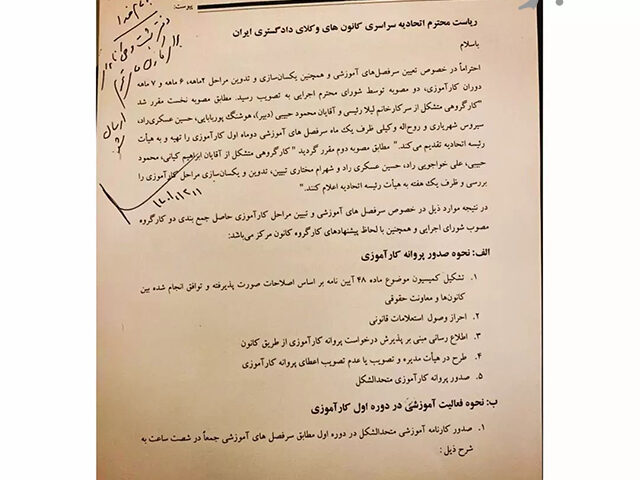 پیوست:
ریاست محترم اتحادیه سراسری کانون های وکلای دادگستری ایران
باسلام
احتراماً در خصوص تعیین سرفصل‌های آموزشی و همچنین یکسان‌سازی و تدوین مراحل ۲ماهه، ۶ ماهه و ۷ ماهه
دوران کارآموزی، دو مصوبه توسط شورای محترم اجرایی به تصویب رسید. مطابق مصوبه نخست مقرر شد
"کارگروهی متشکل از سرکارخانم لیلا رئیسی و آقایان محمود حبیبی (دبیر)، هوشنگ پوربابایی، حسین عسکری‌راد،
سیروس شهریاری و روح‌اله وکیلی ظرف یک ماه سرفصل های آموزشی دوماه اول کارآموزی را تهیه و به هیأت
رئیسه اتحادیه تقدیم می‌کند." مطابق مصوبه دوم مقرر گردید "کارگروهی متشکل از آقایان ابراهیم کیانی، محمود
حبیبی، علی خواجویی راد، حسین عسکری راد و شهرام مختاری تبیین، تدوین و یکسان‌سازی مراحل کارآموزی را
بررسی و ظرف یک هفته به هیأت رئیسه اتحادیه اعلام کنند."
در نتیجه موارد ذیل در خصوص سرفصل های آموزشی و تبیین مراحل کارآموزی حاصل جمع بندی دو کارگروه
مصوب شورای اجرایی و همچنین با لحاظ پیشنهادهای کارگروه کانون مرکز می‌باشد:
الف: نحوه صدور پروانه کارآموزی
۱. تشکیل کمیسیون موضوع ماده ۴۸ آیین نامه بر اساس اصلاحات صورت پذیرفته و توافق انجام شده بین
کانون‌ها و معاونت حقوقی
۲. احراز وصول استعلامات قانونی
۳. اطلاع رسانی مبنی بر پذیرش درخواست پروانه کارآموزی از طریق کانون
۴. طرح در هیأت مدیره و تصویب یا عدم تصویب اعطای پروانه کارآموزی
۵. صدور پروانه کارآموزی متحدالشکل
ب: نحوه فعالیت آموزشی در دوره اول کارآموزی
۱. صدور کارنامه آموزشی متحدالشکل در دوره اول مطابق سرفصل های آموزشی جمعاً در شصت ساعت به
شرح ذیل :